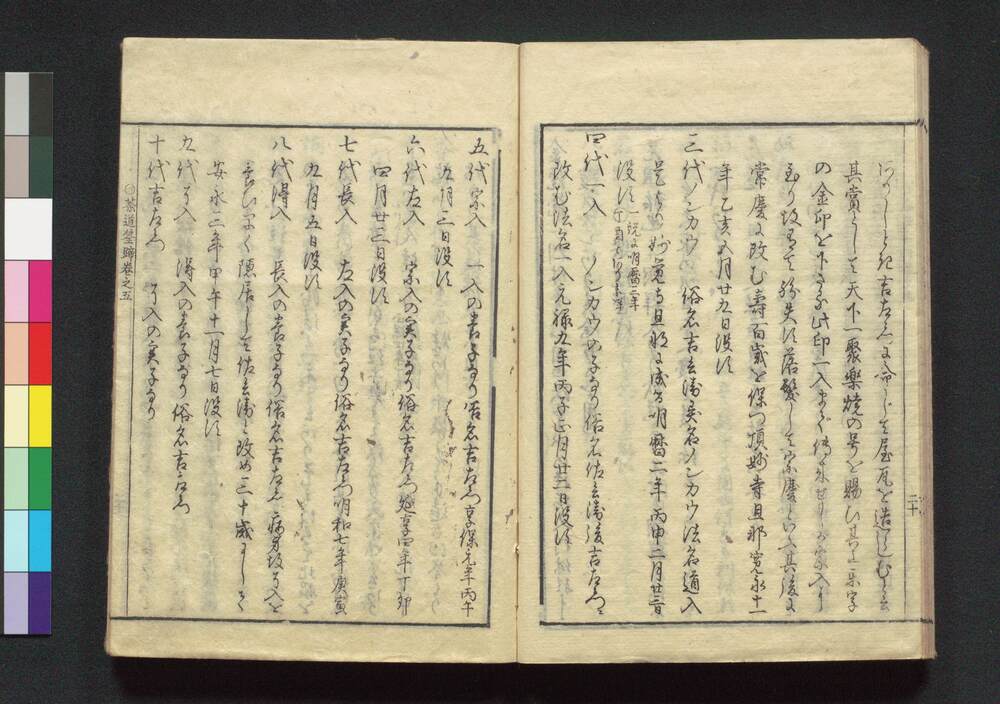 其賞として天下一聚楽焼の号を賜ひ其上楽字
の金印を下さる此印一入まで伝来せしが宗入
常慶に改む寿百歳を保つ頂妙寺旦那寛永十一
年乙亥五月廿九日没す
三代ノンカウ 俗名吉兵衛異名ノンカウ法名道入
妙覚寺旦那に成る明暦二年丙申二月廿三日
没す 一説に明暦二年
四代一入 ノンカウの子なり俗名佐兵衛後吉左衛門と
改む法名一入元禄九年丙子正月廿二日没す
二十
五代宗入 一入の養子なり俗名吉左衛門享保元年丙午
九月三日没す
六代左入 宗入の実子なり俗名吉左衛門延享四年丁卯
四月廿三日没す
七代長入 左入の養子なり俗名吉左衛門明和七年庚寅
九月五日没す
八代得入 長入の養子なり俗名吉左衛門病身故了入を
養ひおく隠居して佐兵衛と改め三十歳にして
安永三年甲午十一月七日没す
九代了入 得入の養子なり俗名吉左衛門
十代吉左衛門 了入の実子なり
茶道筌蹄巻之五